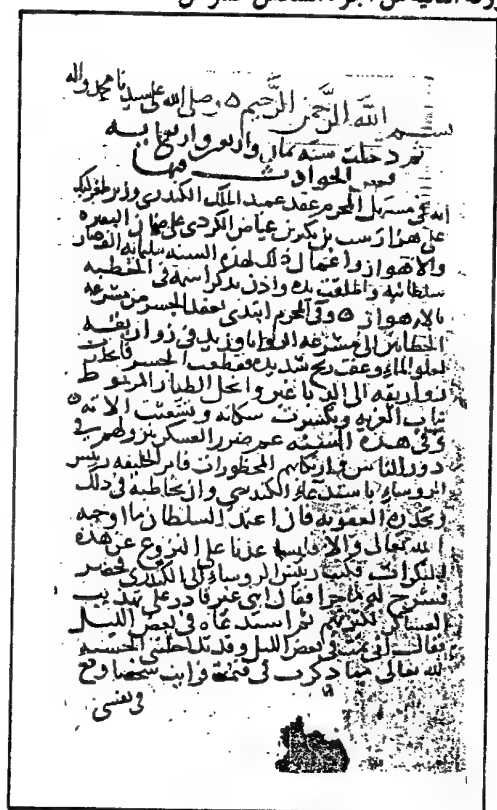 بسم الله الرحمن الرحيم ٥ وصلى الله على سيدنا محمد واله
ثم دخلت سنة ثمان واربعين واربعمايه
فمن الحوادث فيها
انه في مستهل المحرم عقد عميد الملك الكندري وزير طغرلبك
على هزارسب بن بنكير بن عياض الكردي على ضمان البصره
والاهواز واعمال ذلك لهذه السنه بثلثمايه الف دينار
سلطانيه واطلقت يده واذن بذكر اسمه في الخطبه
بالاهواز ٥ وفي المحرم ابتدى بعقد الجسر من مشرعه
الحطابين الى مشرعه الروايا وزيد في زواريقه
لعلو الماء وعقت ريح شديده فقطعت الجسر فانحدرت
زواريقه الى الدباغين وانحل الطيار المربوط
بباب الغربه وتكسرت سكانه وتشعثت الاته ٥
وفي هذه السنه عم ضرر العسكر بنزولهم في
دور الناس وارتكابهم المحظورات فامر الخليفه رئيس
الروساء باستدعاء الكندري وان يخاطبه في ذلك
ويحذره العقوبه فان اعتمد السلطان ما اوجبه
الله تعالى والا فليساعدنا على النزوح عن هذه
المنكرات فكتب رئيس الروساء الى الكندري فحضر
فشرح له ما جرا فقال اني غير قادر على تهذيب
العساكر لكثرتهم ثم استدعاه في بعض الليل
فقال اني نمت في بعض الليل وقد تداخلتني الخشيه
لله تعالى فيما ذكرت في فنمت فرايت شخصا وقع
في نفسي